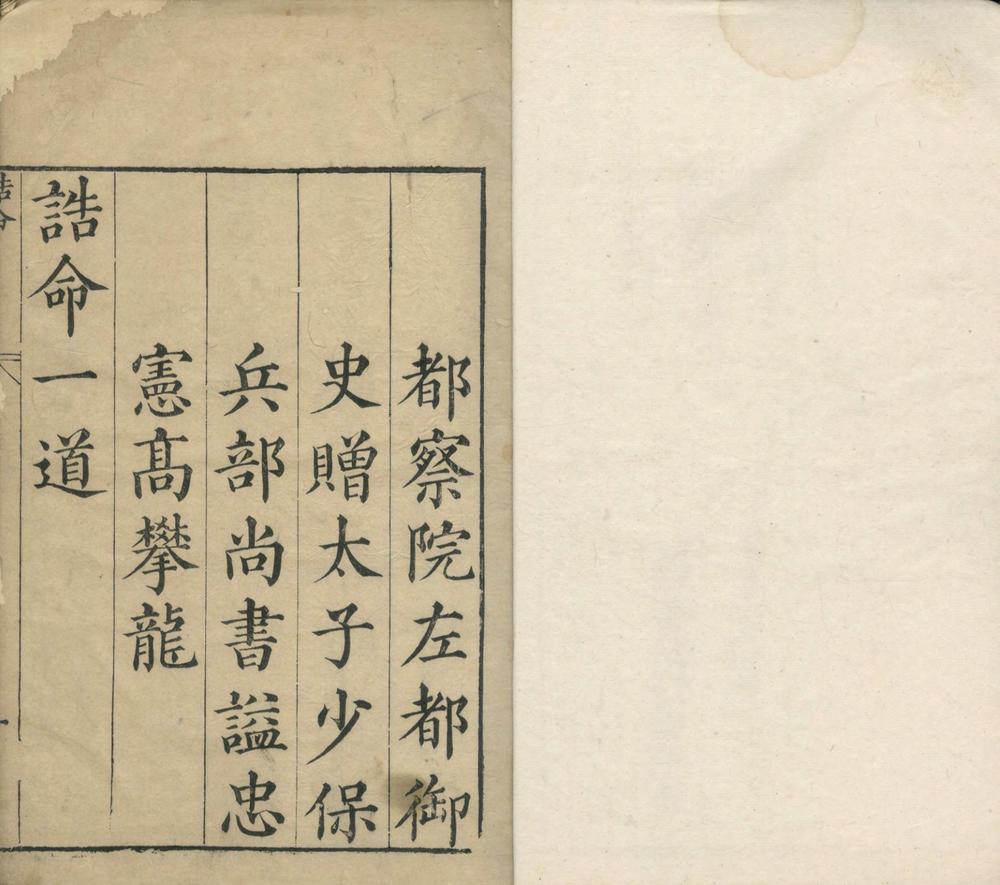 都察院左都御
史贈太子少保
兵部尚書謚忠
憲髙攀龍
誥命一道